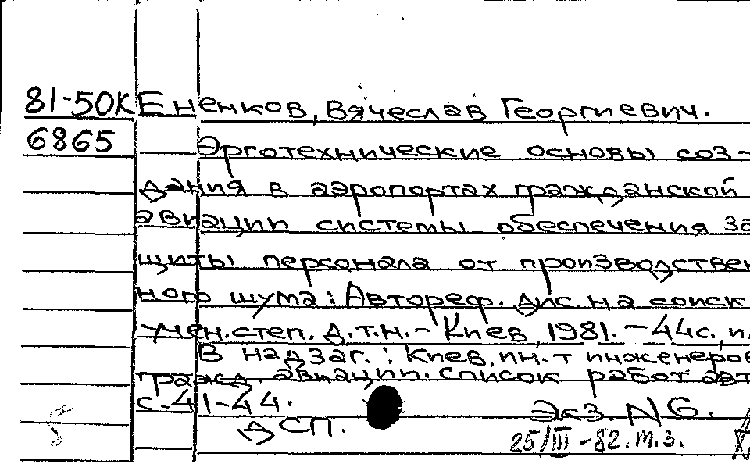 81-50К Ененков, Вячеслав Георгиевич.
6865 Эрготехнические основы соз-
дания в аэропортах гражданской
авиации системы обеспечения за
щиты персонала от производствен
ного шума: Автореф. дис. на соиск
учен. степ. д.т.н. - Киев, 1981. - 44с, и
В надзаг.: Киев. ин-т инженеров
гражд. авиации. Список работ авт
с. 41-44.
Экз. №6.
ДСП.
25/III-82. м.з.